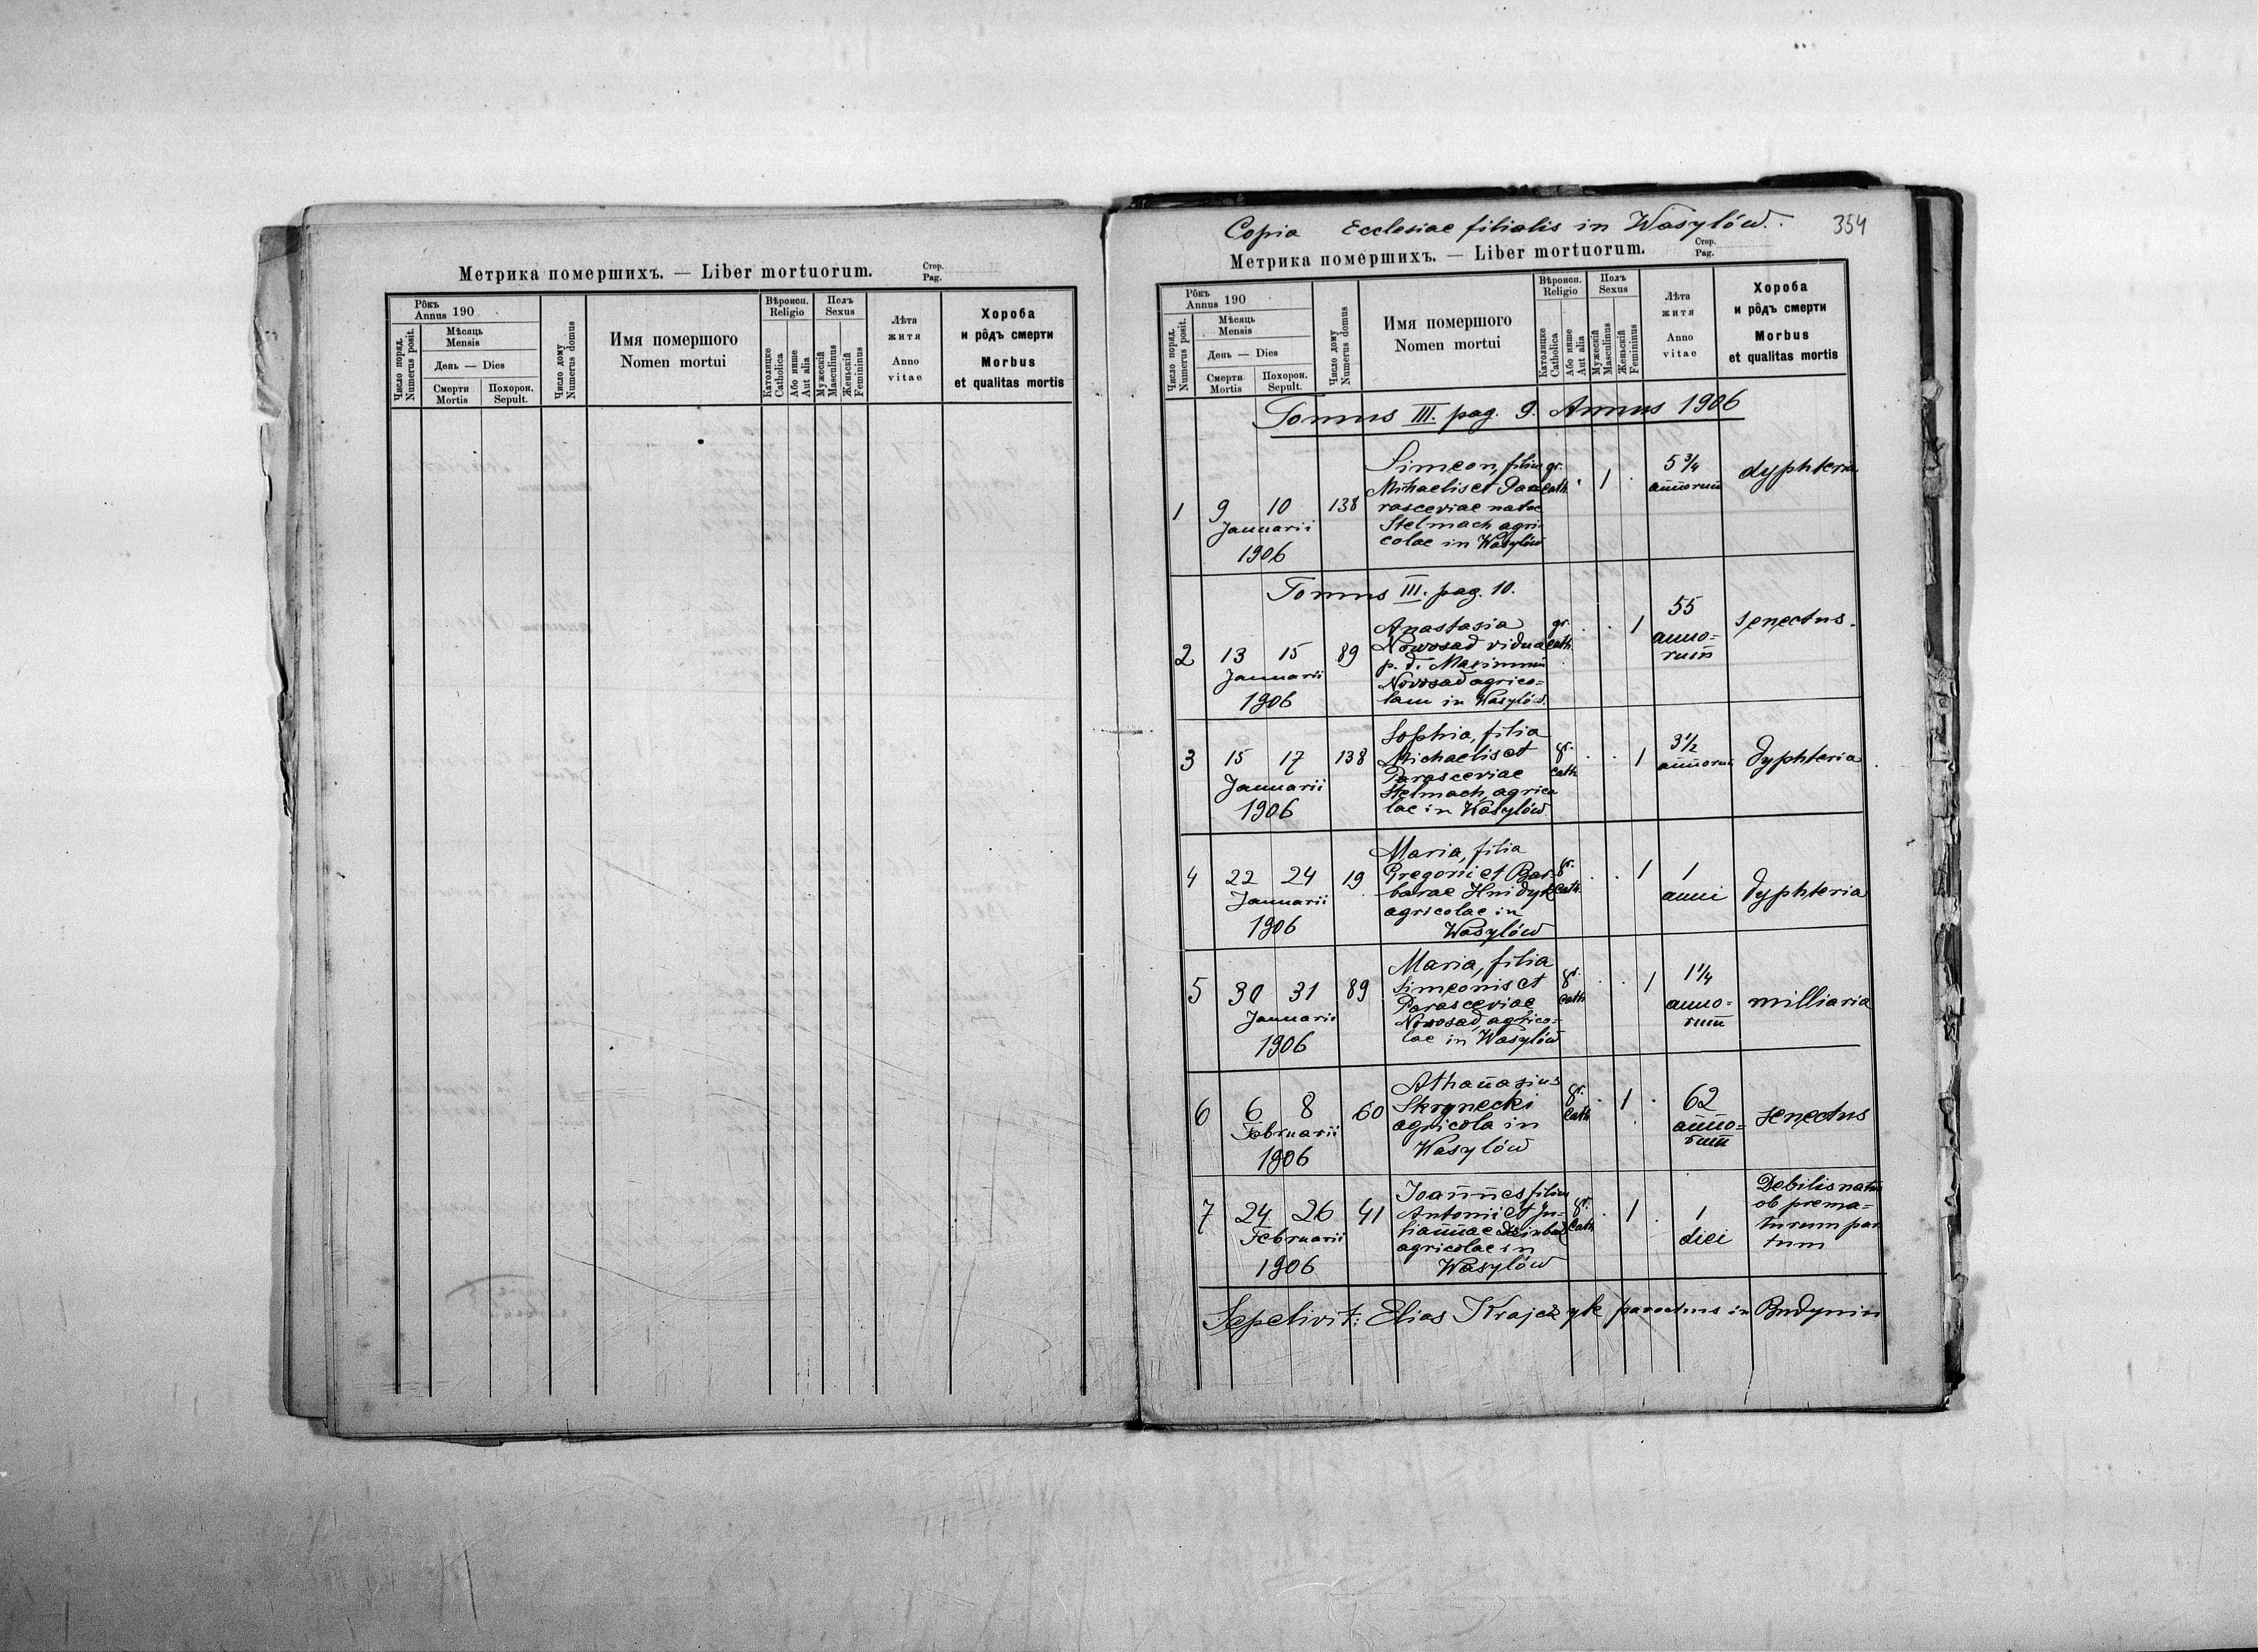 Метрика помершихъ. — Liber mortuorum.
Стор.
Pag.
Число поряд.
Numerus posit.
Рôкъ
Annus 190
Мѣсяць
Mensis
День — Dies
Смерти
Mortis
Похорон.
Sepult.
Число дому
Numerus domus
Имя помершого
Nomen mortui
Вѣроисп.
Religio
Католицке
Catholica
Або инше
Aut alia
Полъ
Sexus
Мужескій
Masculinus
Женьскій
Femininus
Лѣта
житя
Anno
vitae
Хороба
и рôдъ смерти
Morbus
et qualitas mortis
Copia Ecclesiae filialis in Wasylów.
354
Метрика помершихъ. — Liber mortuorum.
Стор.
Pag.
Число поряд.
Numerus posit.
Рôкъ
Annus 190
Мѣсяць
Mensis
День — Dies
Смерти
Mortis
Похорон.
Sepult.
Число дому
Numerus domus
Имя помершого
Nomen mortui
Вѣроисп.
Religio
Католицке
Catholica
Або инше
Aut alia
Полъ
Sexus
Мужескій
Masculinus
Женьскій
Femininus
Лѣта
житя
Anno
vitae
Хороба
и рôдъ смерти
Morbus
et qualitas mortis
Tomus III. pag. 9. Annus 1906
1 9 10 138
Januarii
1906
Simeon, filius
Mihaelis et Pa
rasceviae natae
Stelmach agri-
colae in Wasylów
gr.
cath.
1
5 3/4
annorum
dyphteria
Tomus III. pag. 10.
2 13 15 89
Januarii
1906
Anastasia
Nowosad vidua
p. d. Maximum
Novosad agrico=
lam in Wasylów.
gr.
cath.
1
55
anno=
rum
senectus.
3 15 17 138
Januarii
1906
Sophia, filia
Michaelis et
Parasceviae
Stelmach, agrico
lae in Wasylów.
gr.
cath
1
3 1/2
annorum
dyphteria
4 22 24 19
Januarii
1906
Maria, filia
Gregorii et Bar-
barae Hnidyk
agricolae in
Wasylów
gr.
cath.
1
1
anni
dyphteria
5 30 31 89
Januarii
1906
Maria, filia
Simeonis et
Parasceviae
Novosad, agrico=
lae in Wasylów
gr.
cath
1
1 1/4
anno=
rum
milliaria
6 6 8 60
Februarii
1906
Athanasius
Skrynecki
agricola in
Wasylów
gr.
cath
1
62
anno=
rum
senectus
7 24 26 41
Februarii
1906
Joannes filius
Antonii et Ju-
liannae
agricolae in
Wasylów
gr.
cath
1
1
diei
Debilis natus
ob prema=
turum par
tum
Sepelivit: Elias Krajczyk parochus in Budynin